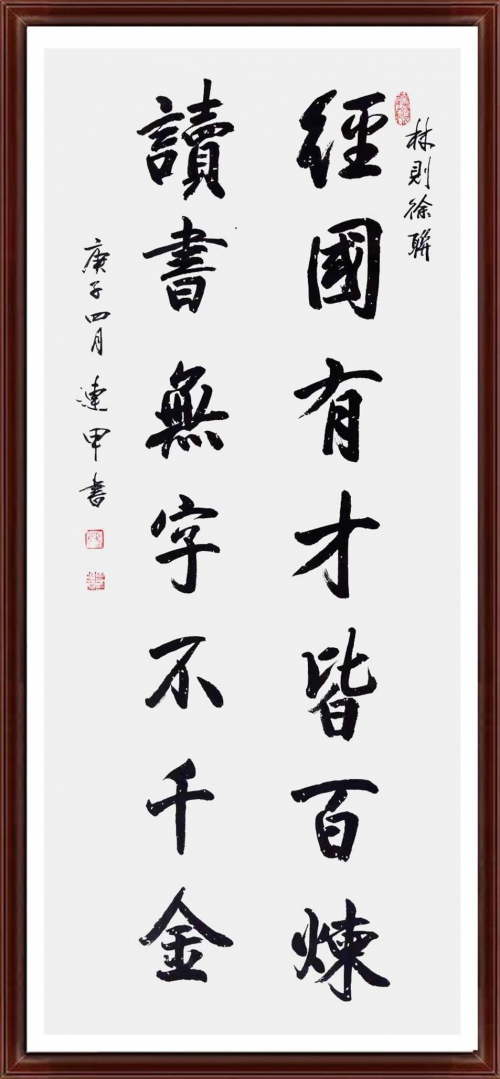 林則徐聯
經國有才皆百煉
讀書無字不千金
庚子四月 連甲書